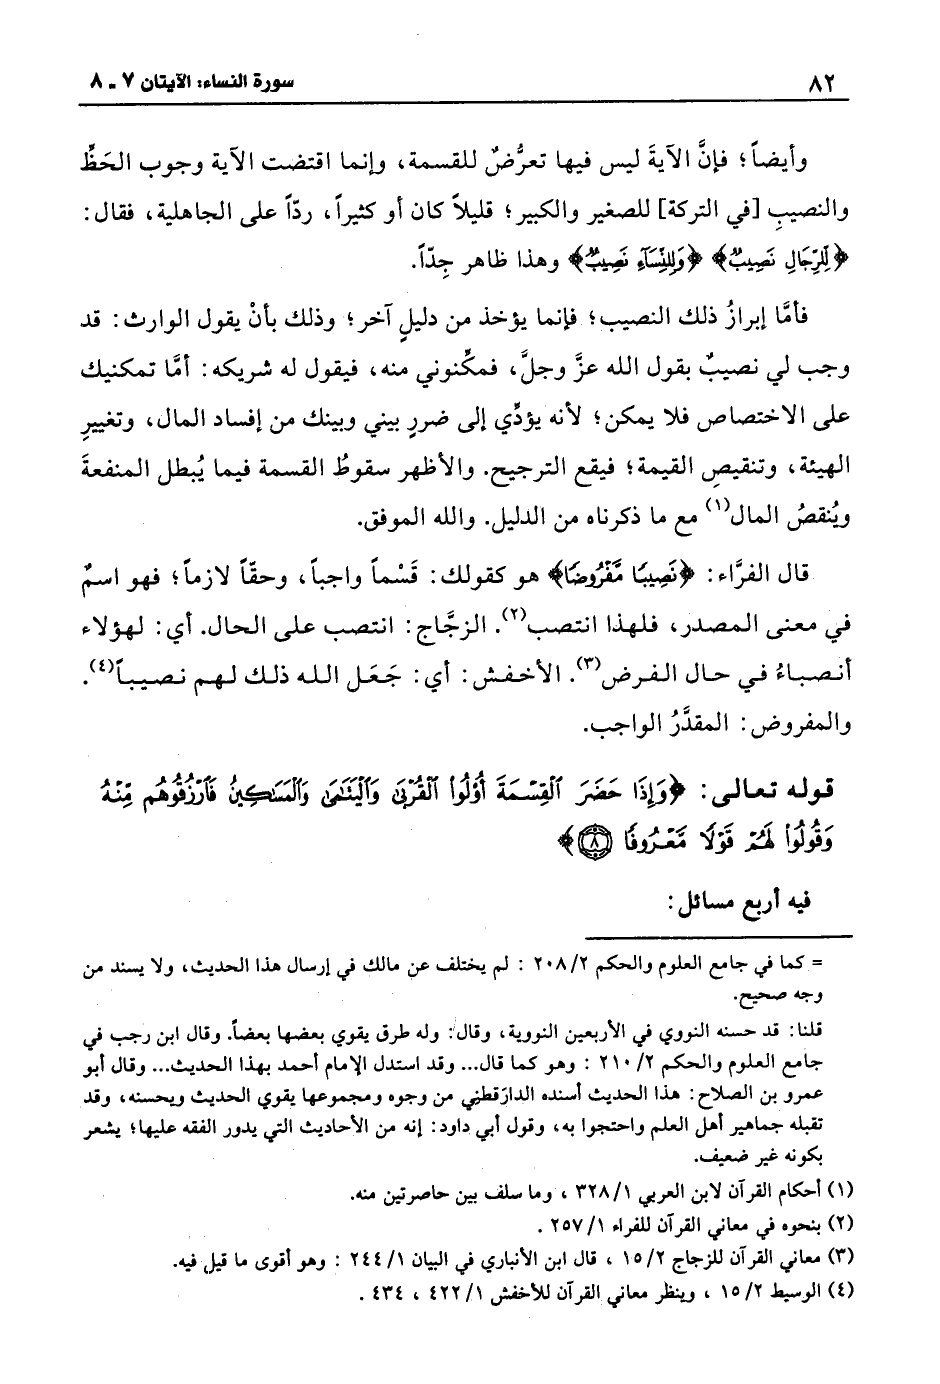 ٨٢
سورة النساء: الآيتان ٧ ـ ٨
وأيضاً؛ فإنَّ الآيةَ ليس فيها تعرُّضٌ للقسمة، وإنما اقتضت الآية وجوب الحَظِّ
والنصيبِ [في التركة] للصغير والكبير؛ قليلاً كان أو كثيراً، ردّاً على الجاهلية، فقال:
﴿لِّلرِّجَالِ نَصِيبٌ﴾ ﴿وَلِلنِّسَآءِ نَصِيبٌ﴾ وهذا ظاهر جِدّاً.
فأمَّا إبرازُ ذلك النصيب؛ فإنما يؤخذ من دليلٍ آخر؛ وذلك بأنْ يقول الوارث: قد
وجب لي نصيبٌ بقول الله عزَّ وجلَّ، فمكِّنوني منه، فيقول له شريكه: أمَّا تمكنيك
على الاختصاص فلا يمكن؛ لأنه يؤدِّي إلى ضررٍ بيني وبينك من إفساد المال، وتغييرِ
الهيئة، وتنقيصِ القيمة؛ فيقع الترجيح. والأظهر سقوطُ القسمة فيما يُبطل المنفعةَ
ويُنقصُ المال(١) مع ما ذكرناه من الدليل. والله الموفق.
قال الفرَّاء: ﴿نَصِيبًا مَّفْرُوضًا﴾ هو كقولك: قَسْماً واجباً، وحقّاً لازماً؛ فهو اسمٌ
في معنى المصدر، فلهذا انتصب(٢). الزجَّاج: انتصب على الحال. أي: لهؤلاء
أنصباءُ في حال الفرض(٣). الأخفش: أي: جَعَل الله ذلك لهم نصيباً(٤).
والمفروض: المقدَّرُ الواجب.
قوله تعالى: ﴿وَإِذَا حَضَرَ ٱلْقِسْمَةَ أُوْلُواْ ٱلْقُرْبَىٰ وَٱلْيَتَٰمَىٰ وَٱلْمَسَٰكِينُ فَٱرْزُقُوهُم مِّنْهُ
وَقُولُواْ لَهُمْ قَوْلًا مَّعْرُوفًا ٨﴾
فيه أربع مسائل:
= كما في جامع العلوم والحكم ٢/ ٢٠٨ : لم يختلف عن مالك في إرسال هذا الحديث، ولا يسند من
وجه صحيح.
قلنا: قد حسنه النووي في الأربعين النووية، وقال: وله طرق يقوي بعضها بعضاً. وقال ابن رجب في
جامع العلوم والحكم ٢/ ٢١٠ : وهو كما قال... وقد استدل الإمام أحمد بهذا الحديث... وقال أبو
عمرو بن الصلاح: هذا الحديث أسنده الدارَقطني من وجوه ومجموعها يقوي الحديث ويحسنه، وقد
تقبله جماهير أهل العلم واحتجوا به، وقول أبي داود: إنه من الأحاديث التي يدور الفقه عليها؛ يشعر
بكونه غير ضعيف.
(١) أحكام القرآن لابن العربي ١/ ٣٢٨ ، وما سلف بين حاصرتين منه.
(٢) بنحوه في معاني القرآن للفراء ١/ ٢٥٧ .
(٣) معاني القرآن للزجاج ٢/ ١٥ ، قال ابن الأنباري في البيان ١/ ٢٤٤ : وهو أقوى ما قيل فيه.
(٤) الوسيط ٢/ ١٥ ، وينظر معاني القرآن للأخفش ١/ ٤٢٢ ، ٤٣٤ .